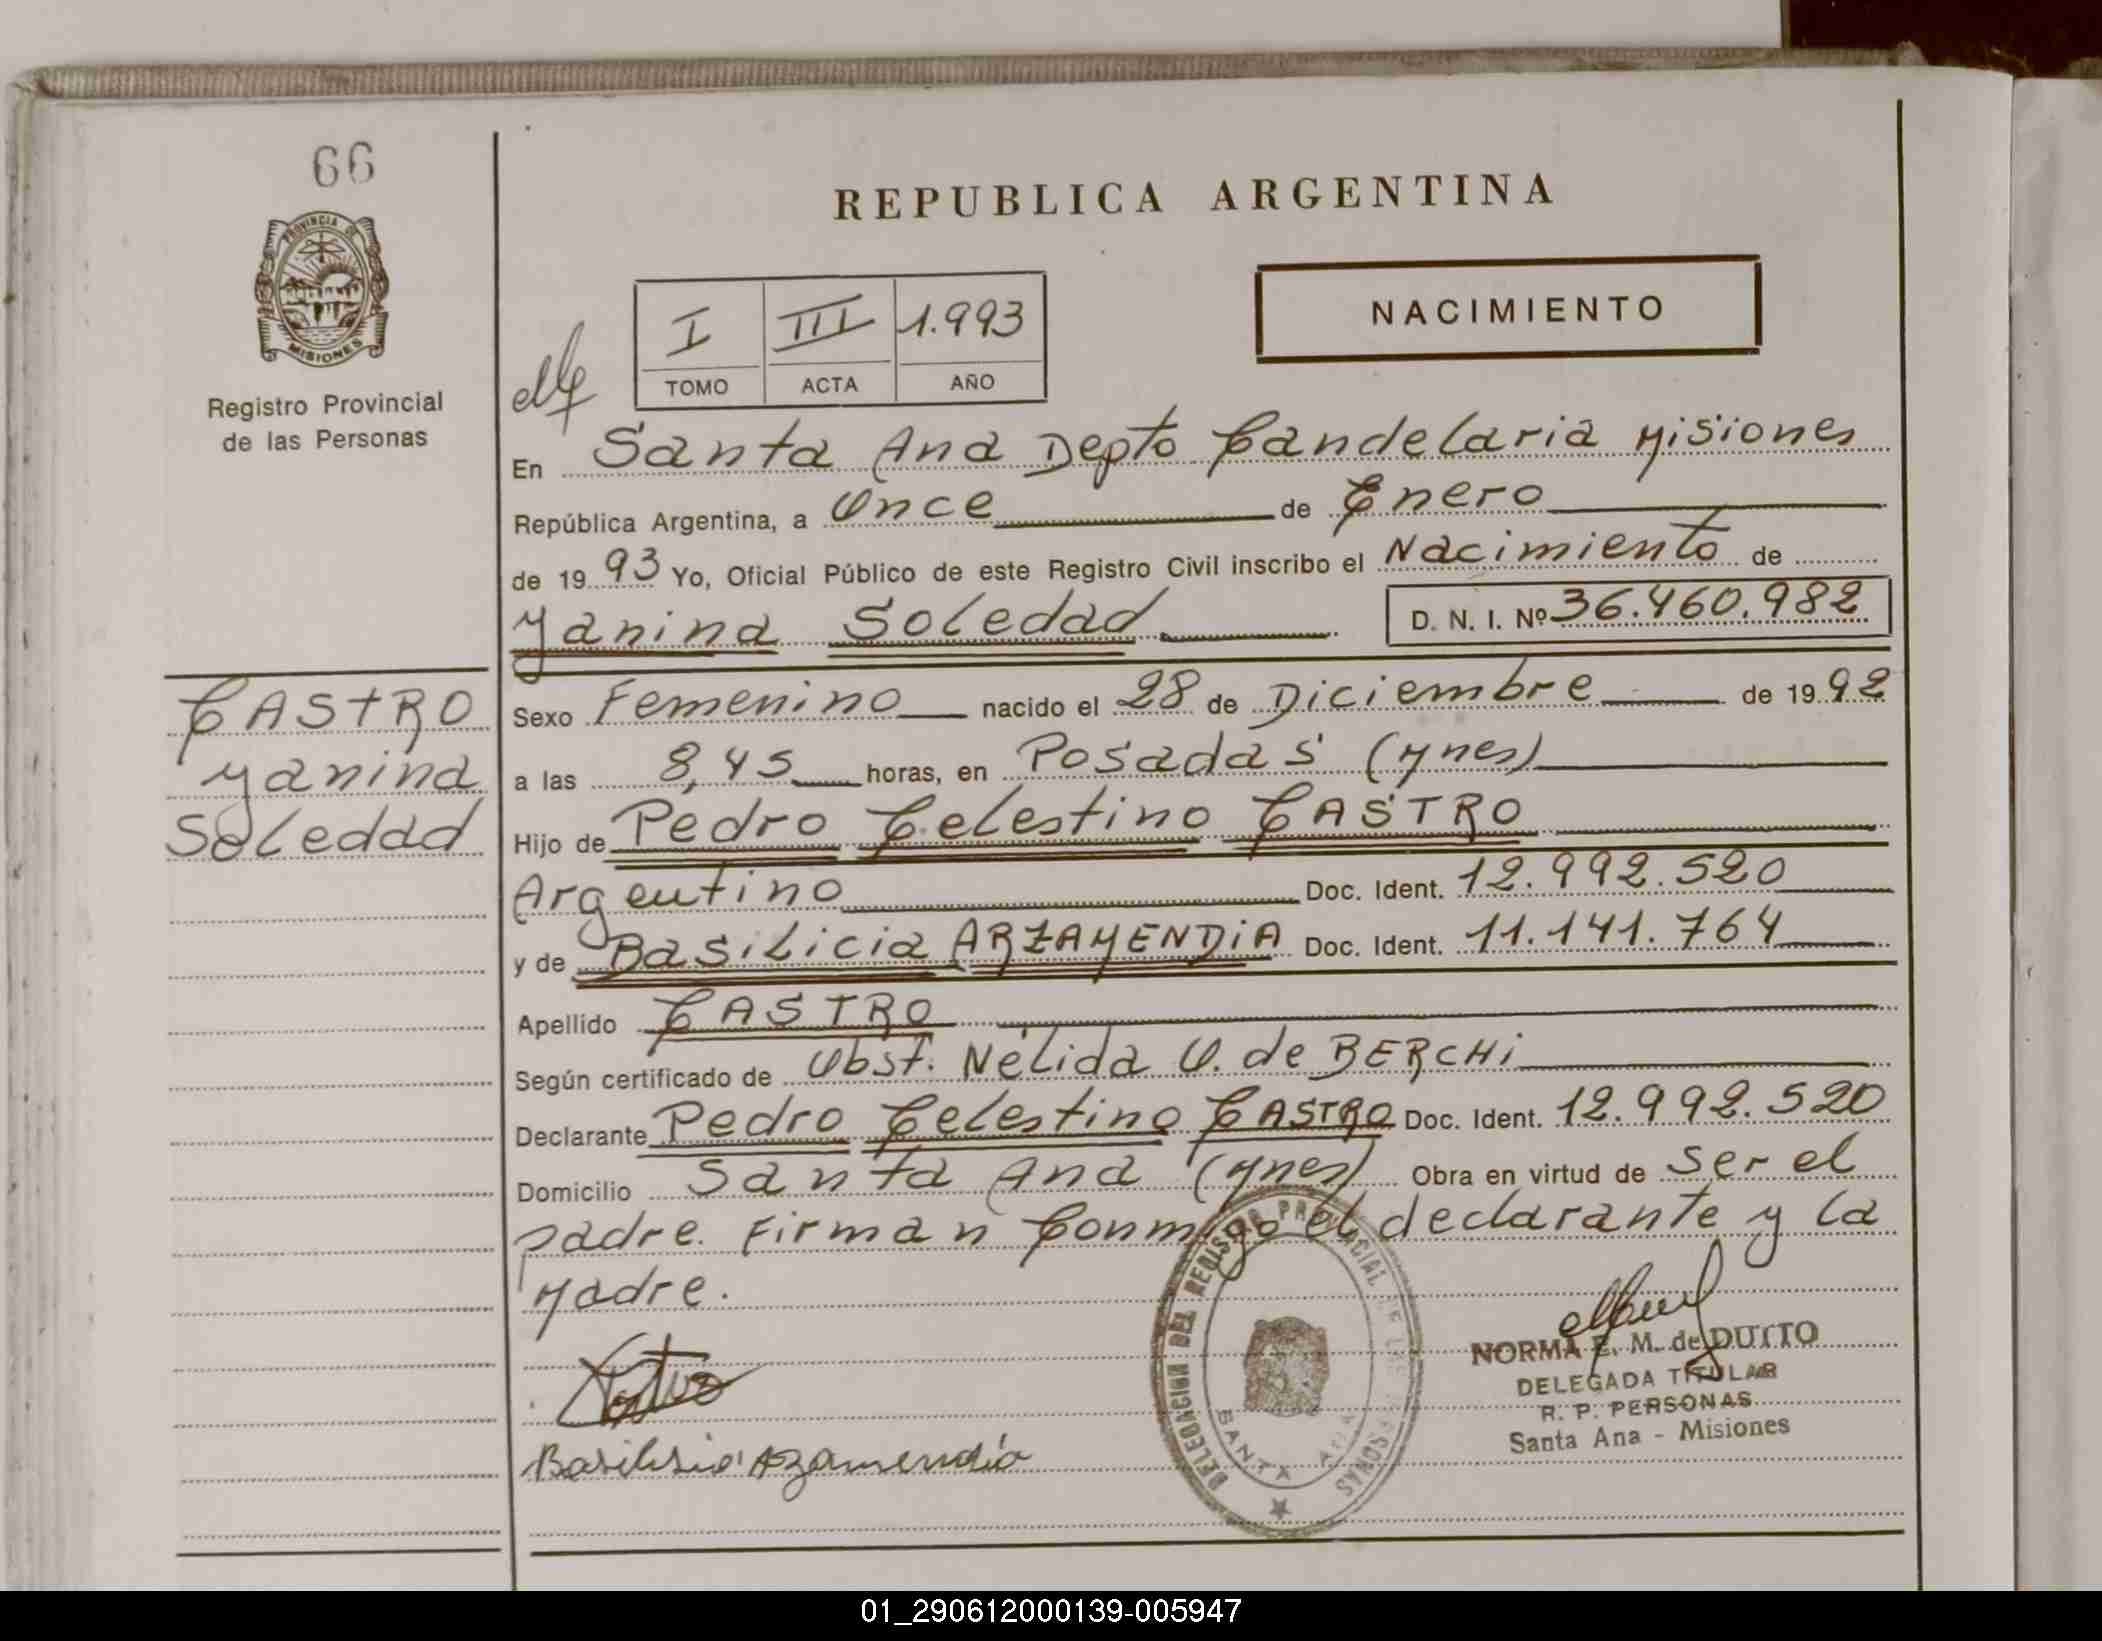 66
PROVINCIA DE
MISIONES
Registro Provincial
de las Personas
REPUBLICA ARGENTINA
NACIMIENTO
I III 1.993
TOMO ACTA AÑO
En Santa Ana Depto Candelaria Misiones
República Argentina, a Once de Enero
de 1993 Yo, Oficial Público de este Registro Civil inscribo el Nacimiento de
Yanina Soledad D. N. I. Nº 36.460.982
CASTRO
Yanina
Soledad
Sexo Femenino nacido el 28 de Diciembre de 1992
a las 8,45 horas, en Posadas (Mnes)
Hijo de Pedro Celestino CASTRO
Argentino Doc. Ident. 12.992.520
y de Basilicia ARZAMENDIA Doc. Ident. 11.141.764
Apellido CASTRO
Según certificado de Obst. Nélida O. de BERCHI
Declarante Pedro Celestino CASTRO Doc. Ident. 12.992.520
Domicilio Santa Ana (Mnes) Obra en virtud de ser el
padre. Firman Conmigo el declarante y la
Madre.
Castro
Basilisia Azamendia
DELEGACION DEL REGISTRO PROVINCIAL DE LAS PERSONAS
SANTA ANA
NORMA E. M. de DUTTO
DELEGADA TITULAR
R. P. PERSONAS
Santa Ana - Misiones
01_290612000139-005947